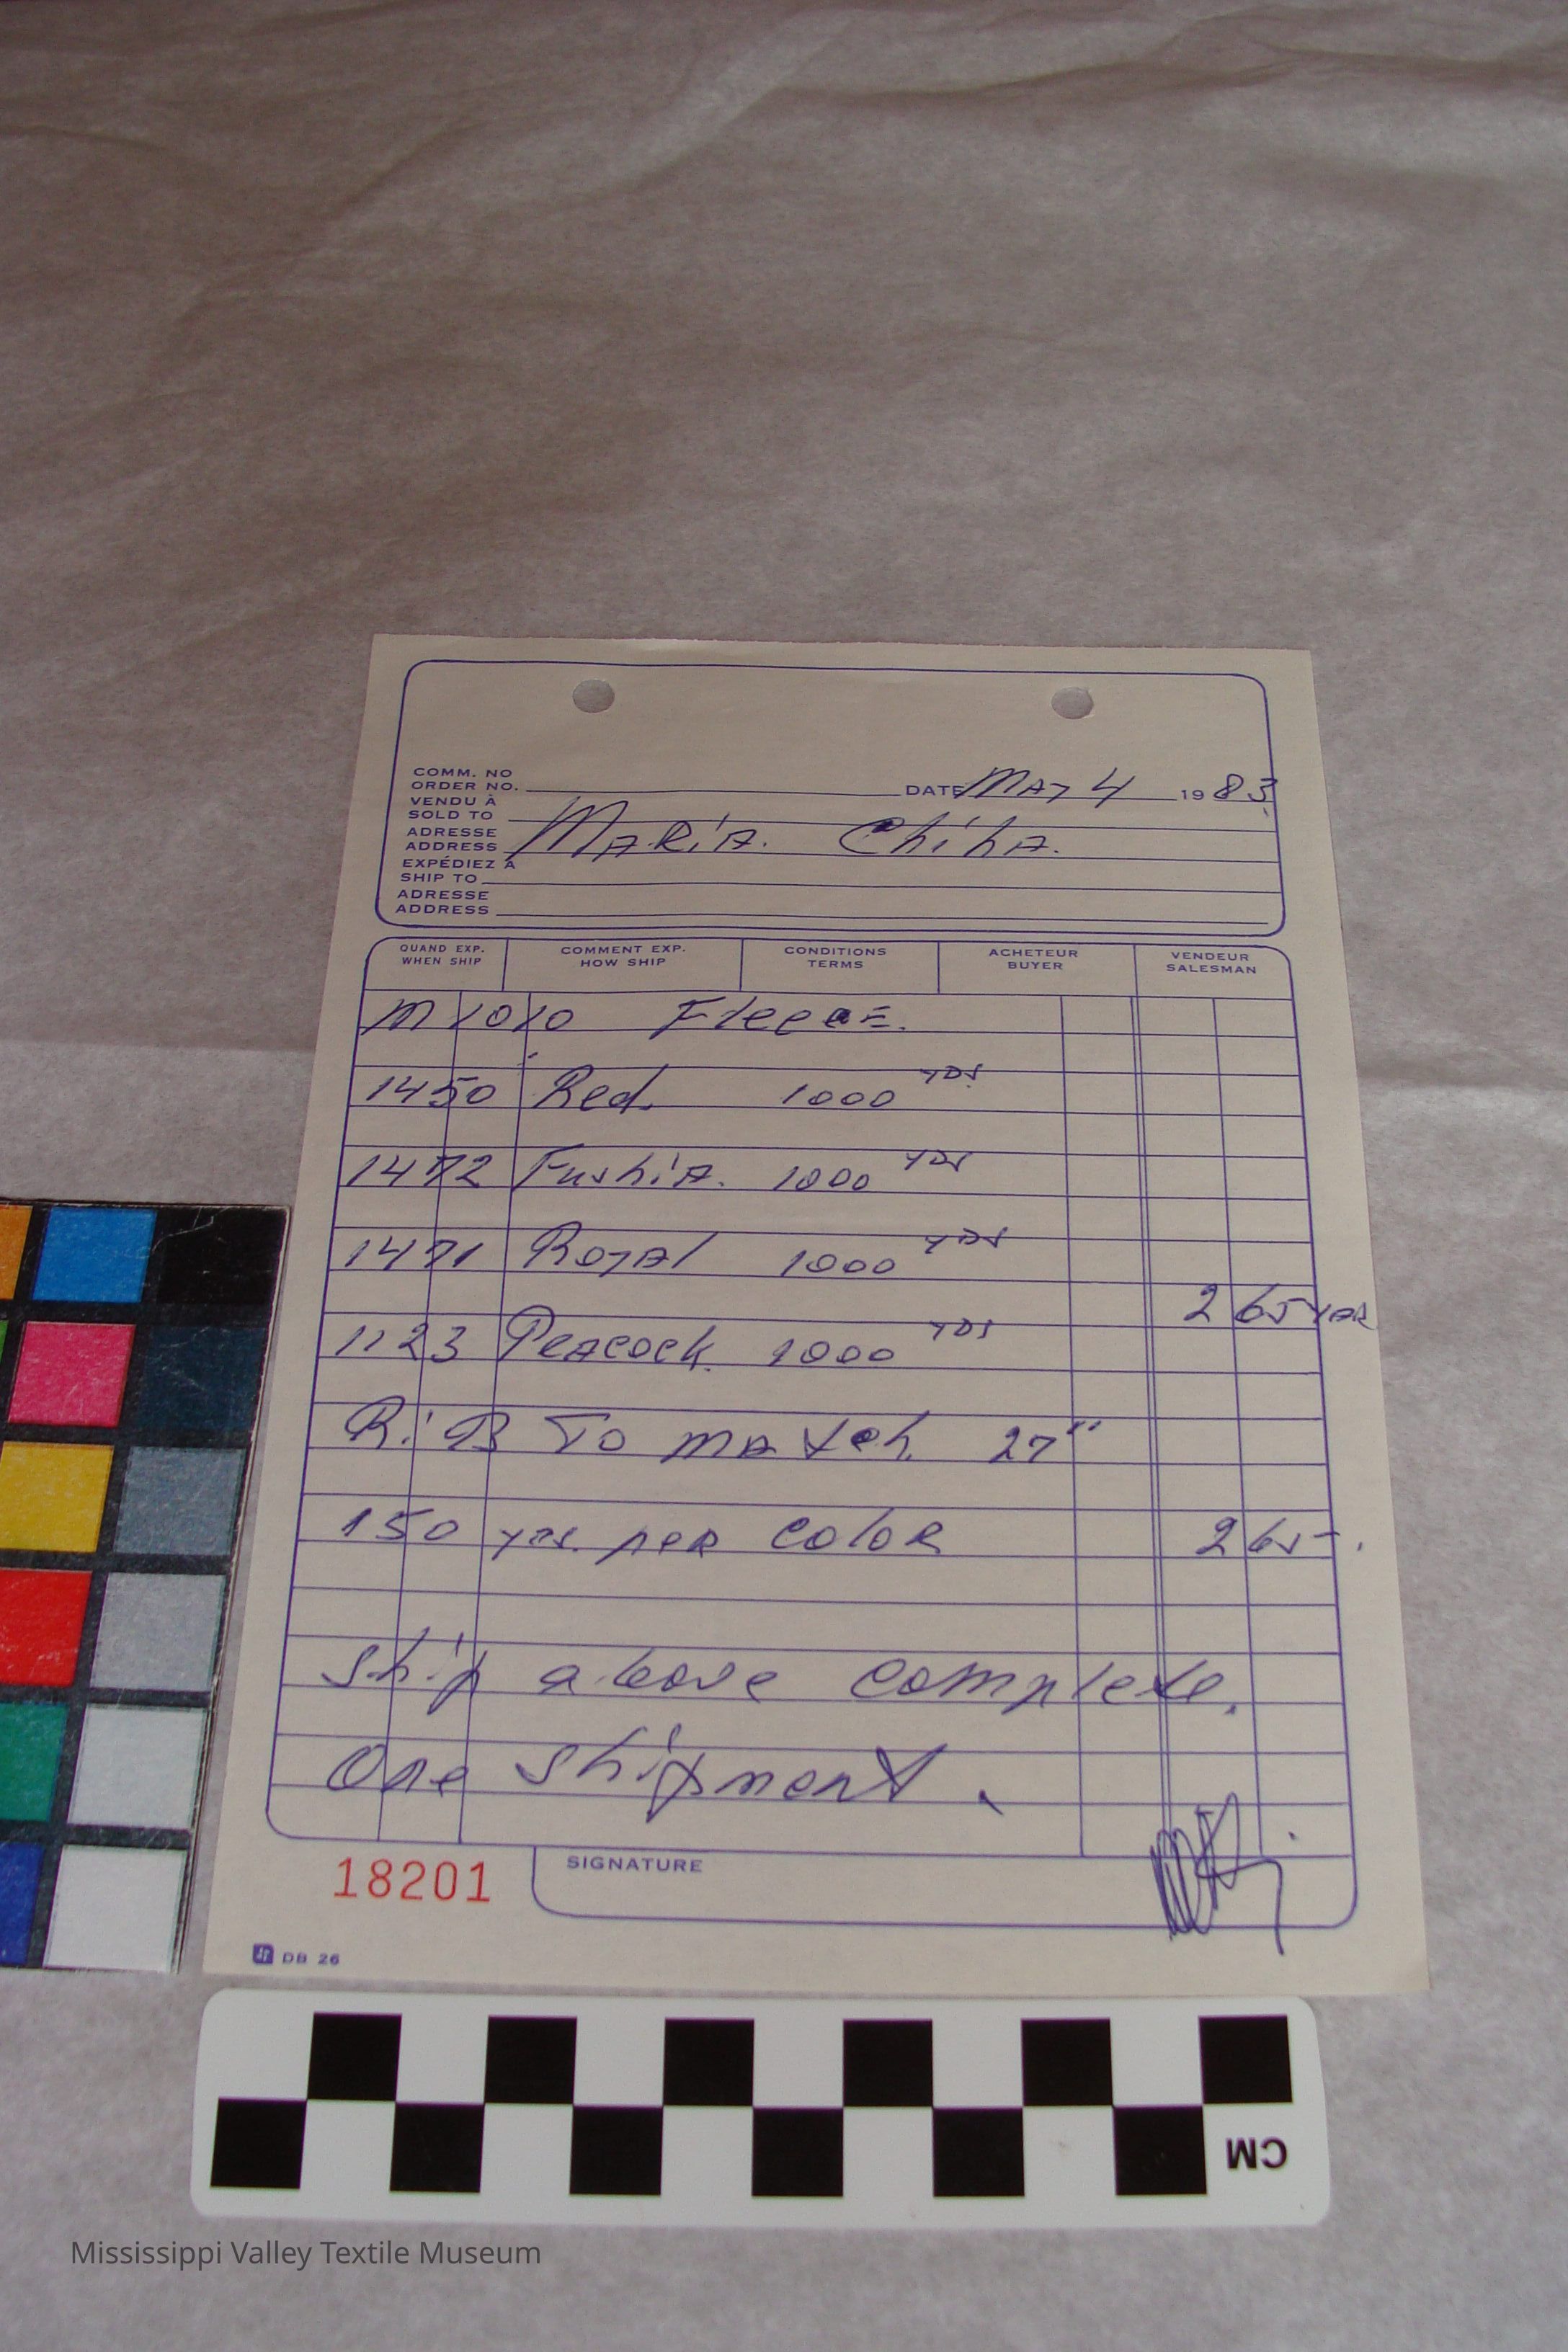 COMM. NO
ORDER NO. DATE May 4 19 83
VENDU À
SOLD TO
ADRESSE Maria. Chiha.
ADDRESS
EXPÉDIEZ À
SHIP TO
ADRESSE
ADDRESS
QUAND EXP. COMMENT EXP. CONDITIONS ACHETEUR VENDEUR
WHEN SHIP HOW SHIP TERMS BUYER SALESMAN
M1010 Fleece.
1450 Red. 1000 YDS
1472 Fushia. 1000 YDS
1471 Royal 1000 YDS
2 65
1123 Peacock. 1000 YDS
Rib To match 27"
150 yds. per color 2 65
Ship above complete.
One shipment.
18201 SIGNATURE
DB 26
CM
Mississippi Valley Textile Museum